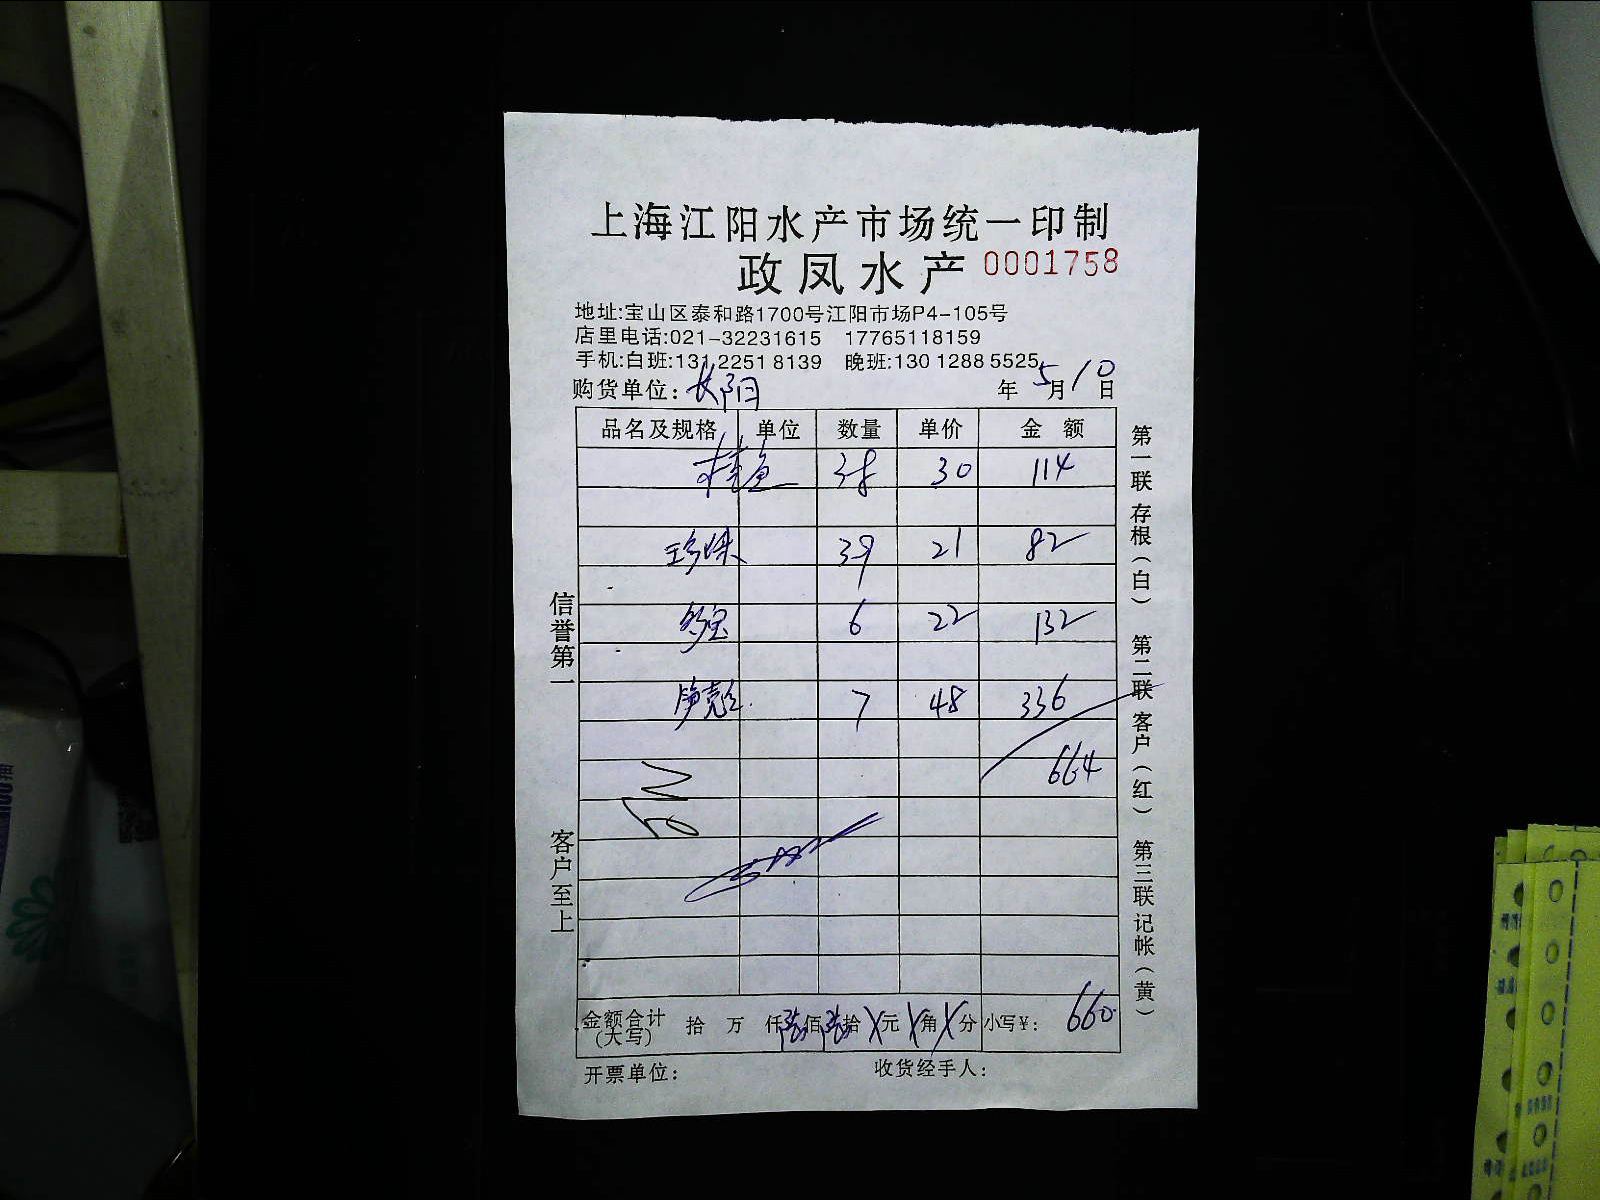 上海江阳水产市场统一印制
政凤水产 0001758
地址:宝山区泰和路1700号江阳市场P4-105号
店里电话:021-32231615 17765118159
手机:白班:131 2251 8139 晚班:130 1288 5525
购货单位: 长阳 年 5月10日
品名及规格 单位 数量 单价 金额
桂鱼 38 30 114
珍珠 39 21 82
多宝 6 22 132
笋壳 7 48 336
664
金额合计(大写) 拾 万 仟 陆佰 陆拾 X元 X角 X分 小写¥: 660
开票单位: 收货经手人:
信誉第一
客户至上
第一联 存根(白) 第二联 客户(红) 第三联 记帐(黄)